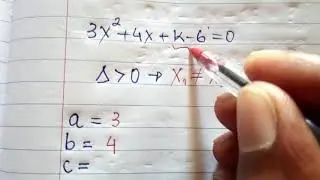 3x²+4x+k-6=0
Δ>0 → X₁ ≠
a = 3
b = 4
c =